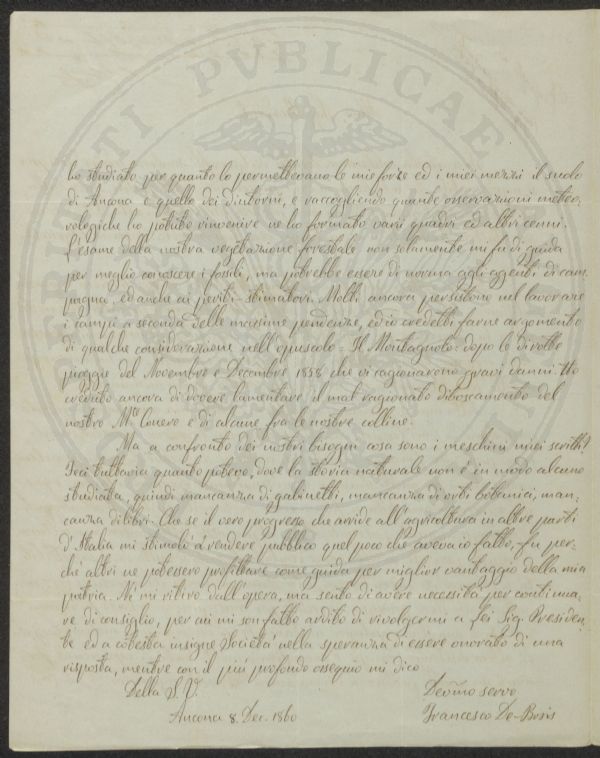 ho studiato per quanto lo permettevano le mie forze ed i miei mezzi il suolo
di Ancona e quello dei dintorni, e raccogliendo quante osservazioni meteo,
rologiche ho potuto rinvenire ne ho formato varii quadri ed altri cenni.
L'esame della nostra vegetazione forestale non solamente mi fu di guida
per meglio conoscere i fossili, ma potrebbe essere di norma agli agenti di cam,
pagna, ed anche ai periti stimatori. Molti ancora persistono nel lavorare
i campi a seconda delle massime pendenze, ed io credetti farne argomento
di qualche considerazione nell'opuscolo = Il Montagnolo = dopo le dirotte
pioggie del Novembre e Decembre 1858 che vi cagionarono gravi danni. Ho
creduto ancora di dovere lamentare il mal ragionato diboscamento del
nostro M.te Conero e di alcune fra le nostre colline.
Ma a confronto dei nostri bisogni cosa sono i meschini miei scritti?
Feci tuttavia quanto potevo, dove la storia naturale non è in modo alcuno
studiata, quindi mancanza di gabinetti, mancanza di orti botanici, man,
canza di libri. Che se il vero progresso che arride all'agricoltura in altre parti
d'Italia mi stimolò a rendere pubblico quel poco che avevo io fatto, fu per,
ché altri ne potessero profittare come guida per miglior vantaggio della mia
patria. Né mi ritiro dall'opera, ma sento di avere necessità per continua,
re di consiglio, per cui mi son fatto ardito di rivolgermi a Lei Sig. Presiden,
te ed a cotesta insigne Società nella speranza di essere onorato di una
risposta, mentre con il più profondo ossequio mi dico
Della S. V.
Devmo servo
Ancona 8. Dec. 1860
Francesco De-Bosis
PVBLICAE